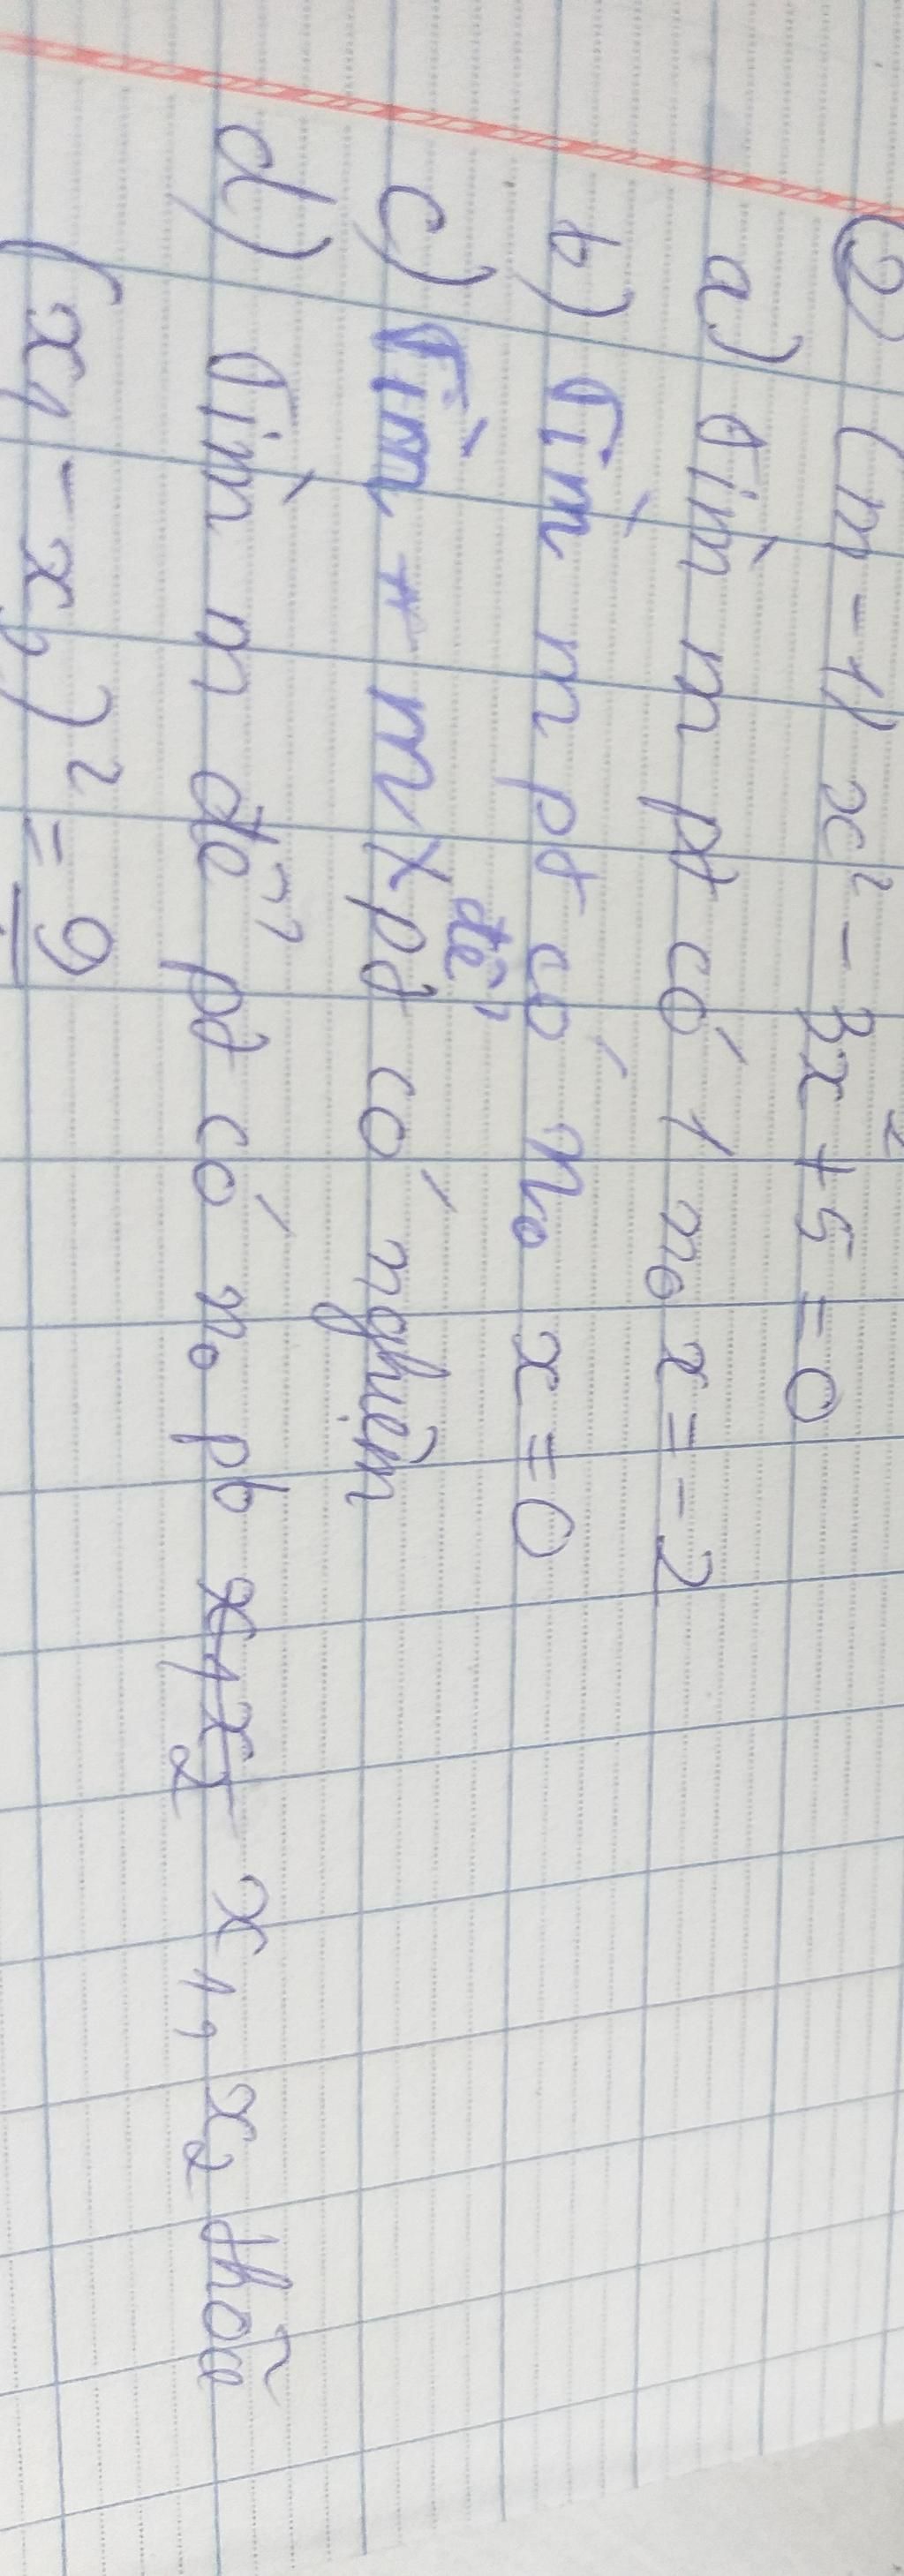 2) (m-1)x² - 3x + 5 = 0
a) Tìm m pt có 1 n₀ x = -2
b) Tìm m pt có n₀ x = 0
c) Tìm m để pt có nghiệm
d) Tìm m để pt có n₀ pb x₁, x₂ thõa
(x₁ - x₂)² = 9